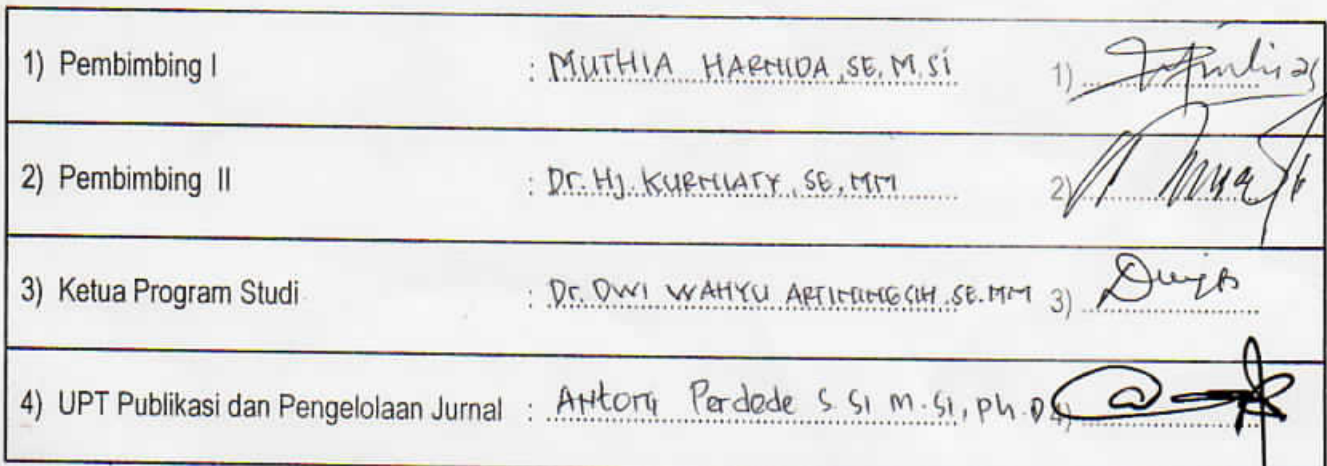 1) Pembimbing I : MUTHIA HARNIDA, SE, M.Si 1)
2) Pembimbing II : Dr. Hj. KURNIATY, SE, MM 2)
3) Ketua Program Studi : Dr. DWI WAHYU ARTININGSIH. SE. MM 3)
4) UPT Publikasi dan Pengelolaan Jurnal : Antony Perdede S. Si M. Si, Ph. D 4)